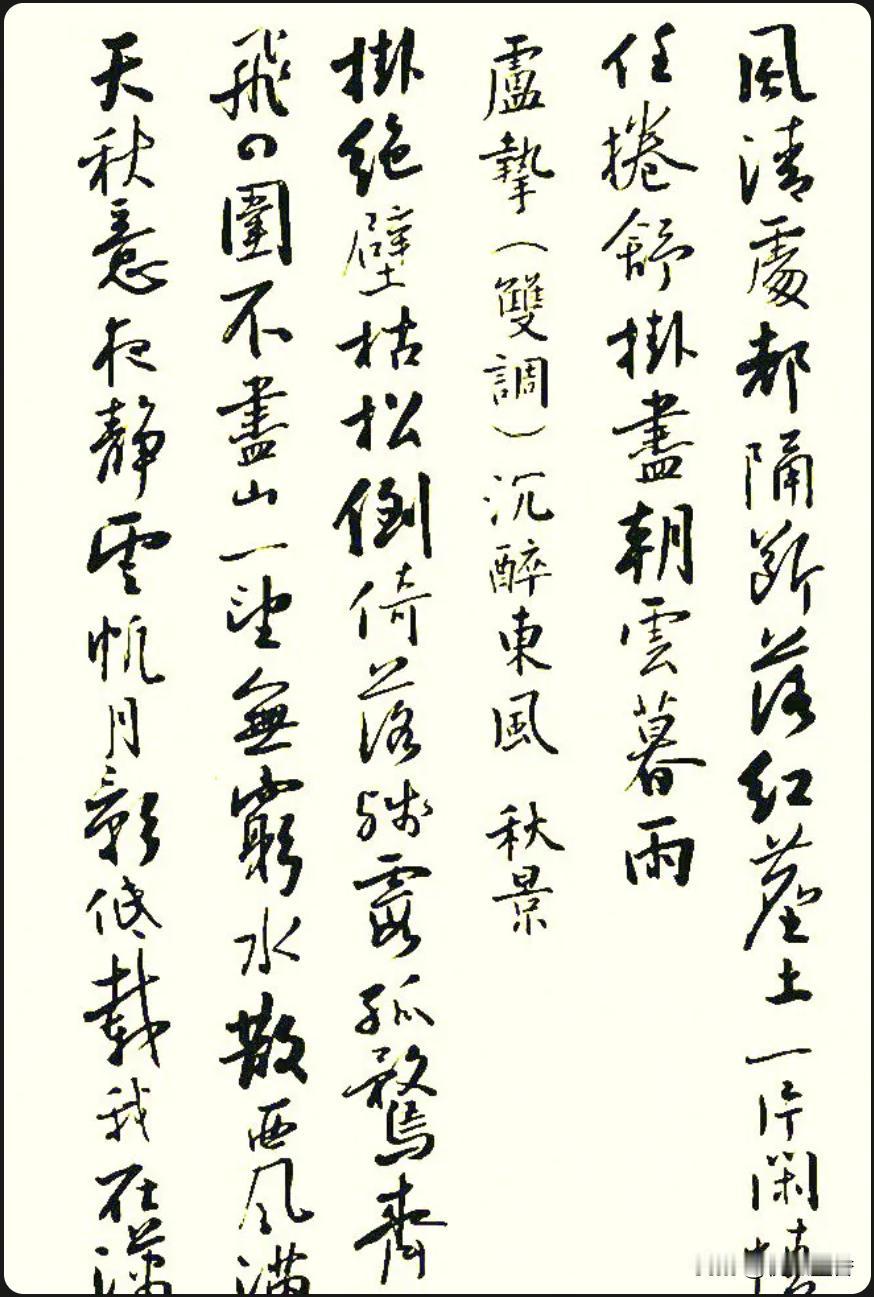 風清處都隔斷落紅塵土一片閑情
任捲舒掛盡朝雲暮雨
盧摯（雙調）沉醉東風 秋景
掛絕壁枯松倒倚落殘霞孤鶩齊
飛四圍不盡山一望無窮水散西風滿
天秋意夜靜雲帆月影低載我在瀟